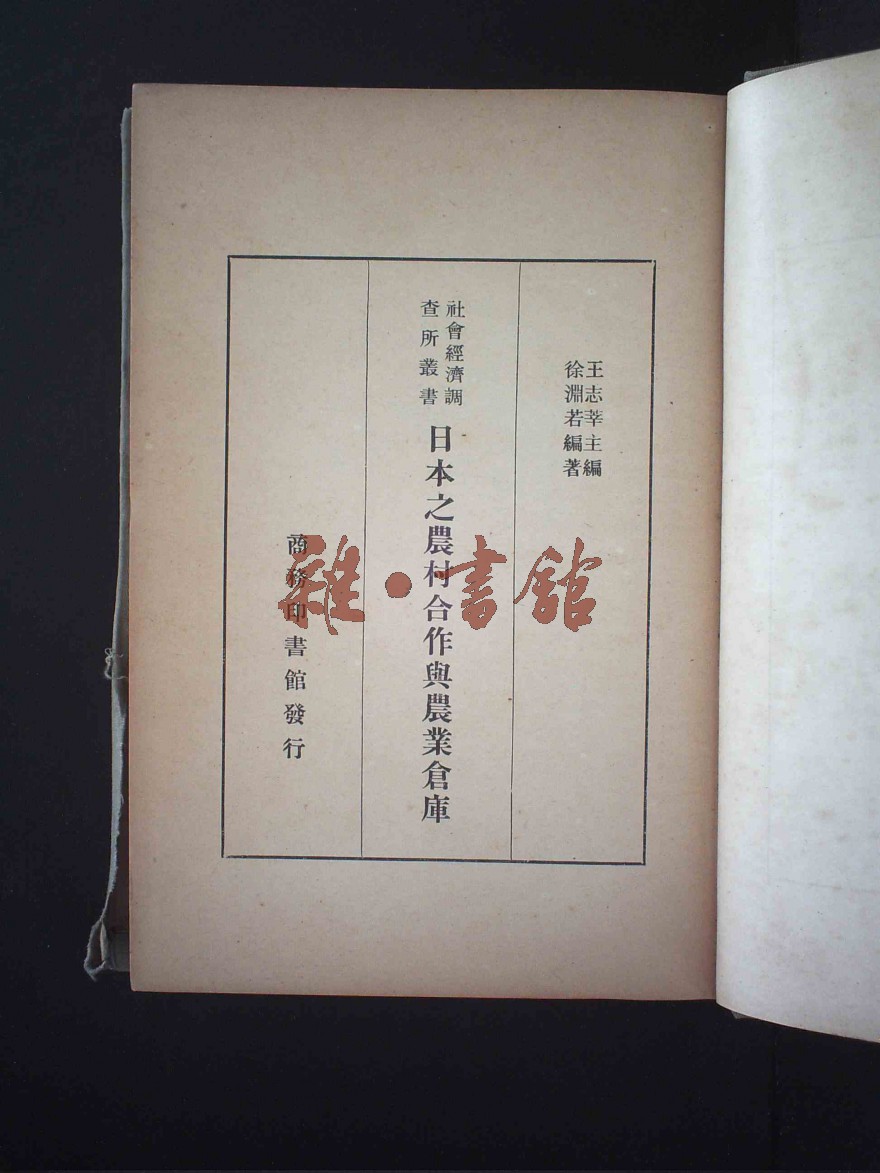 王志莘主編
徐淵若編著
社會經濟調
查所叢書
日本之農村合作與農業倉庫
商務印書館發行
雜·書館